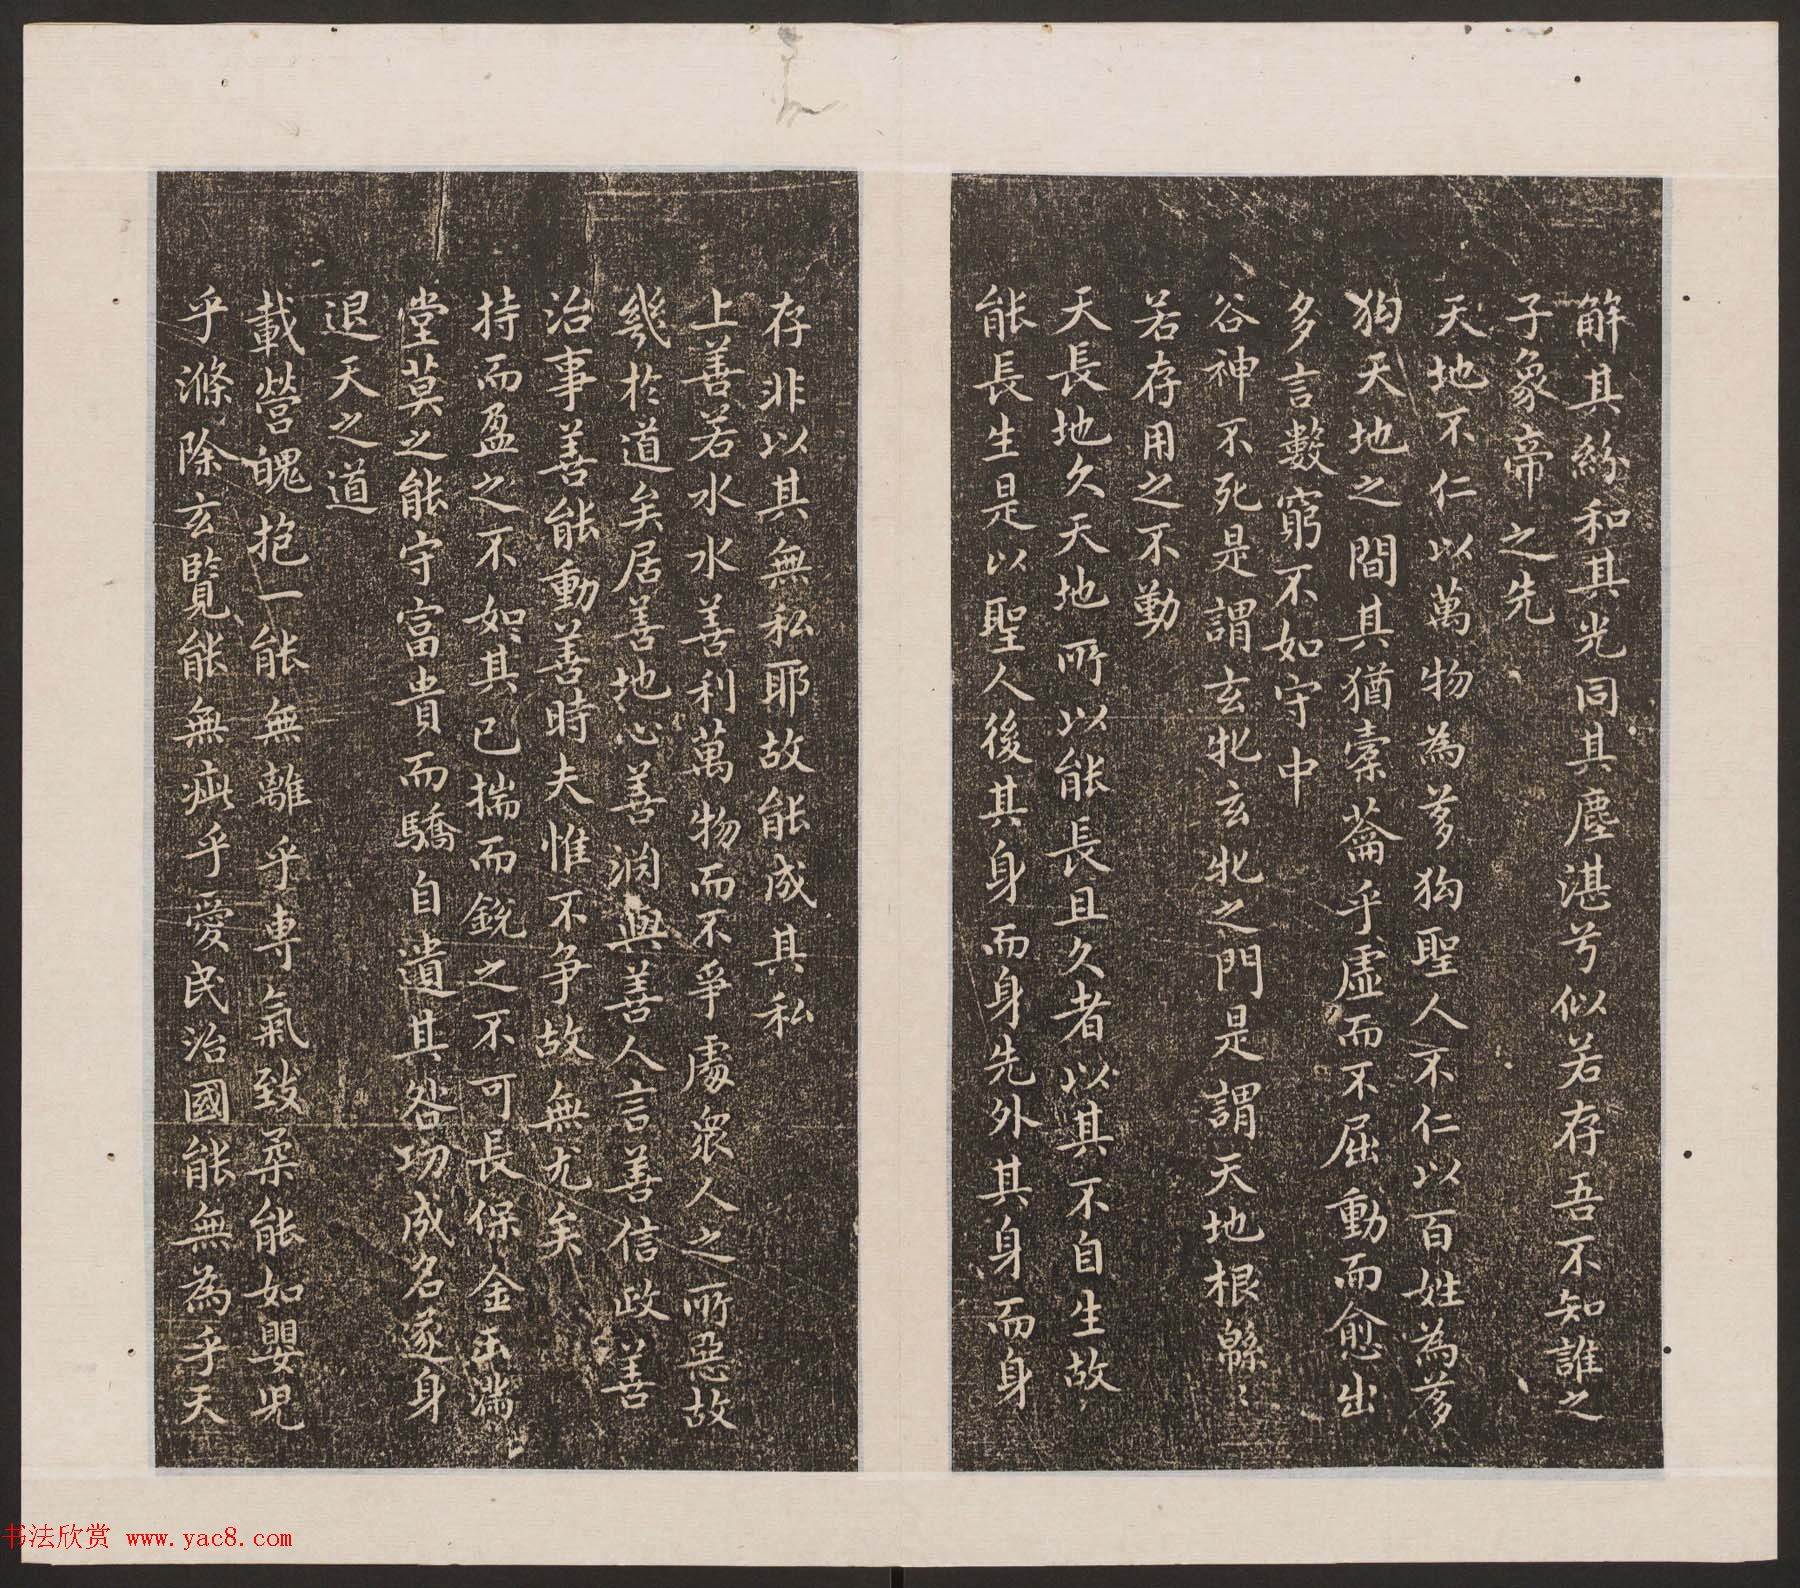 解其紛和其光同其塵湛兮似若存吾不知誰之
子象帝之先
天地不仁以萬物為芻狗聖人不仁以百姓為芻
狗天地之間其猶橐蘥乎虛而不屈動而愈出
多言數窮不如守中
谷神不死是謂玄牝玄牝之門是謂天地根緜〻
若存用之不勤
天長地久天地所以能長且久者以其不自生故
能長生是以聖人後其身而身先外其身而身
存非以其無私耶故能成其私
上善若水水善利萬物而不爭處眾人之所惡故
幾於道矣居善地心善渊與善人言善信政善
治事善能動善時夫惟不争故無尤矣
持而盈之不如其已揣而銳之不可長保金玉滿
堂莫之能守富貴而驕自遺其咎功成名遂身
退天之道
載營魄抱一能無離乎專氣致柔能如嬰児
乎滌除玄覽能無疵乎愛民治國能無為乎天
书法欣赏 www.yac8.com